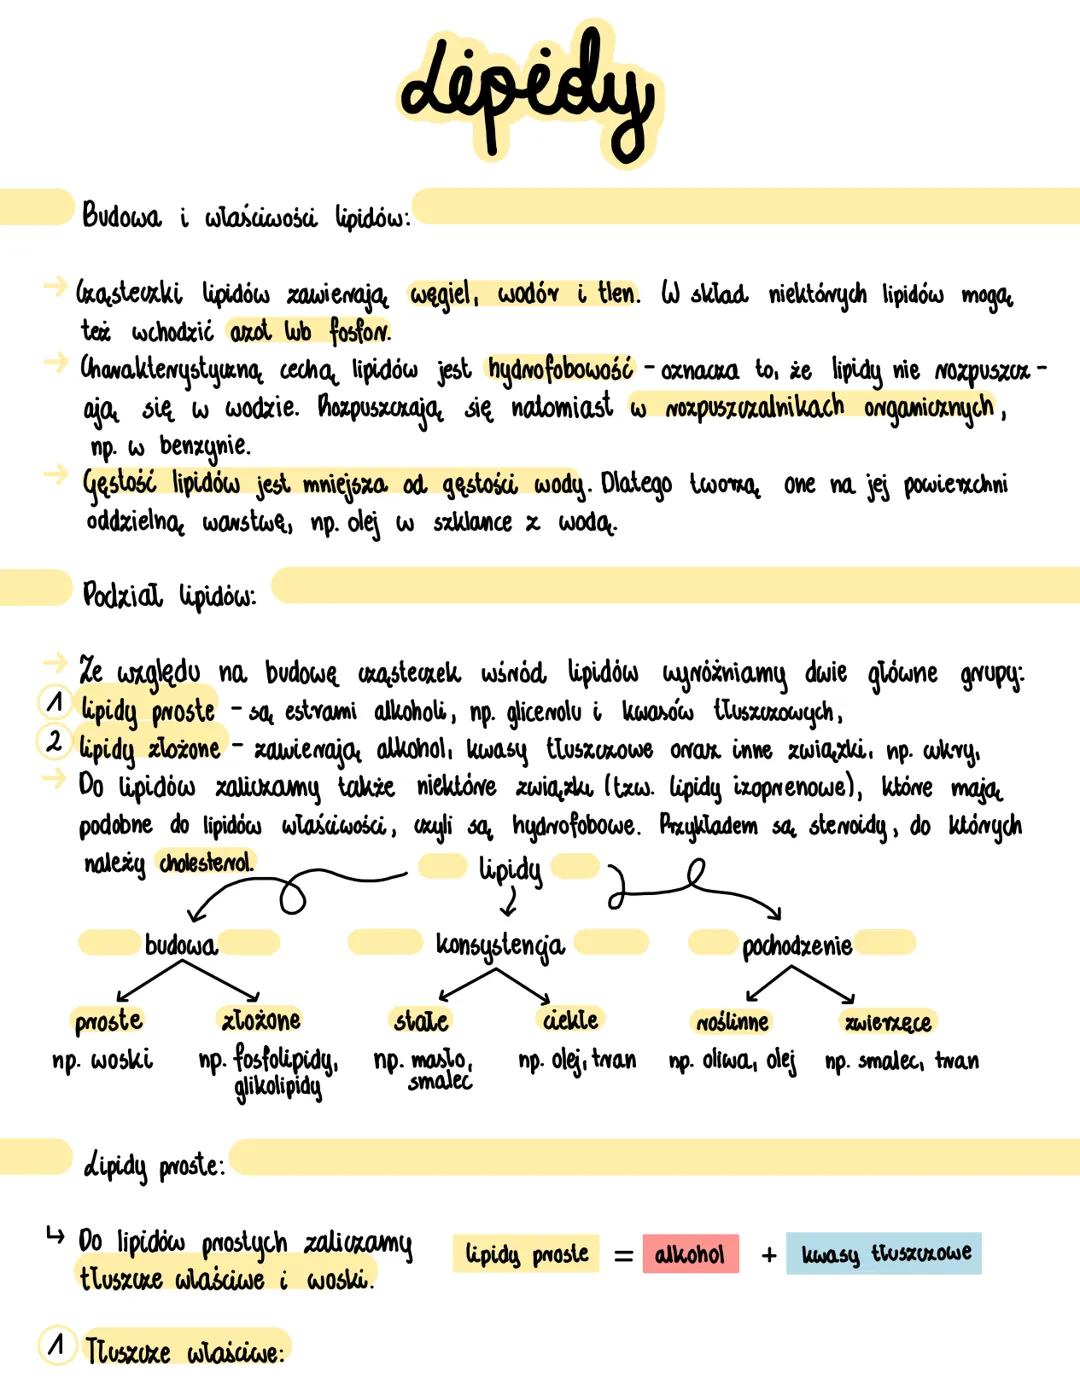 Lipidy
Budowa i właściwości lipidów:
→ Cząsteczki lipidów zawierają węgiel, wodór i tlen. W skład niektórych lipidów mogą
też wchodzić azot lub fosfor.
→ Charakterystyczną cechą lipidów jest hydrofobowość - oznacza to, że lipidy nie rozpuszcz-
ają się w wodzie. Rozpuszczają się natomiast w rozpuszczalnikach organicznych,
np. w benzynie.
→ Gęstość lipidów jest mniejsza od gęstości wody. Dlatego tworzą one na jej powierzchni
oddzielną warstwę, np. olej w szklance z wodą.
Podział lipidów:
→ Ze względu na budowę cząsteczek wśród lipidów wyróżniamy dwie główne grupy:
1 lipidy proste - są estrami alkoholi, np. glicerolu i kwasów tłuszczowych,
2 lipidy złożone - zawierają alkohol, kwasy tłuszczowe oraz inne związki, np. cukry,
→ Do lipidów zaliczamy także niektóre związki (tzw. lipidy izoprenowe), które mają
podobne do lipidów właściwości, czyli są hydrofobowe. Przykładem są steroidy, do których
należy cholesterol.
lipidy
budowa konsystencja pochodzenie
proste złożone stałe ciekłe roślinne zwierzęce
np. woski np. fosfolipidy, np. masło, np. olej, tran np. oliwa, olej np. smalec, tran
glikolipidy smalec
Lipidy proste:
↳ Do lipidów prostych zaliczamy
tłuszcze właściwe i woski.
lipidy proste = alkohol + kwasy tłuszczowe
1 Tłuszcze właściwe: